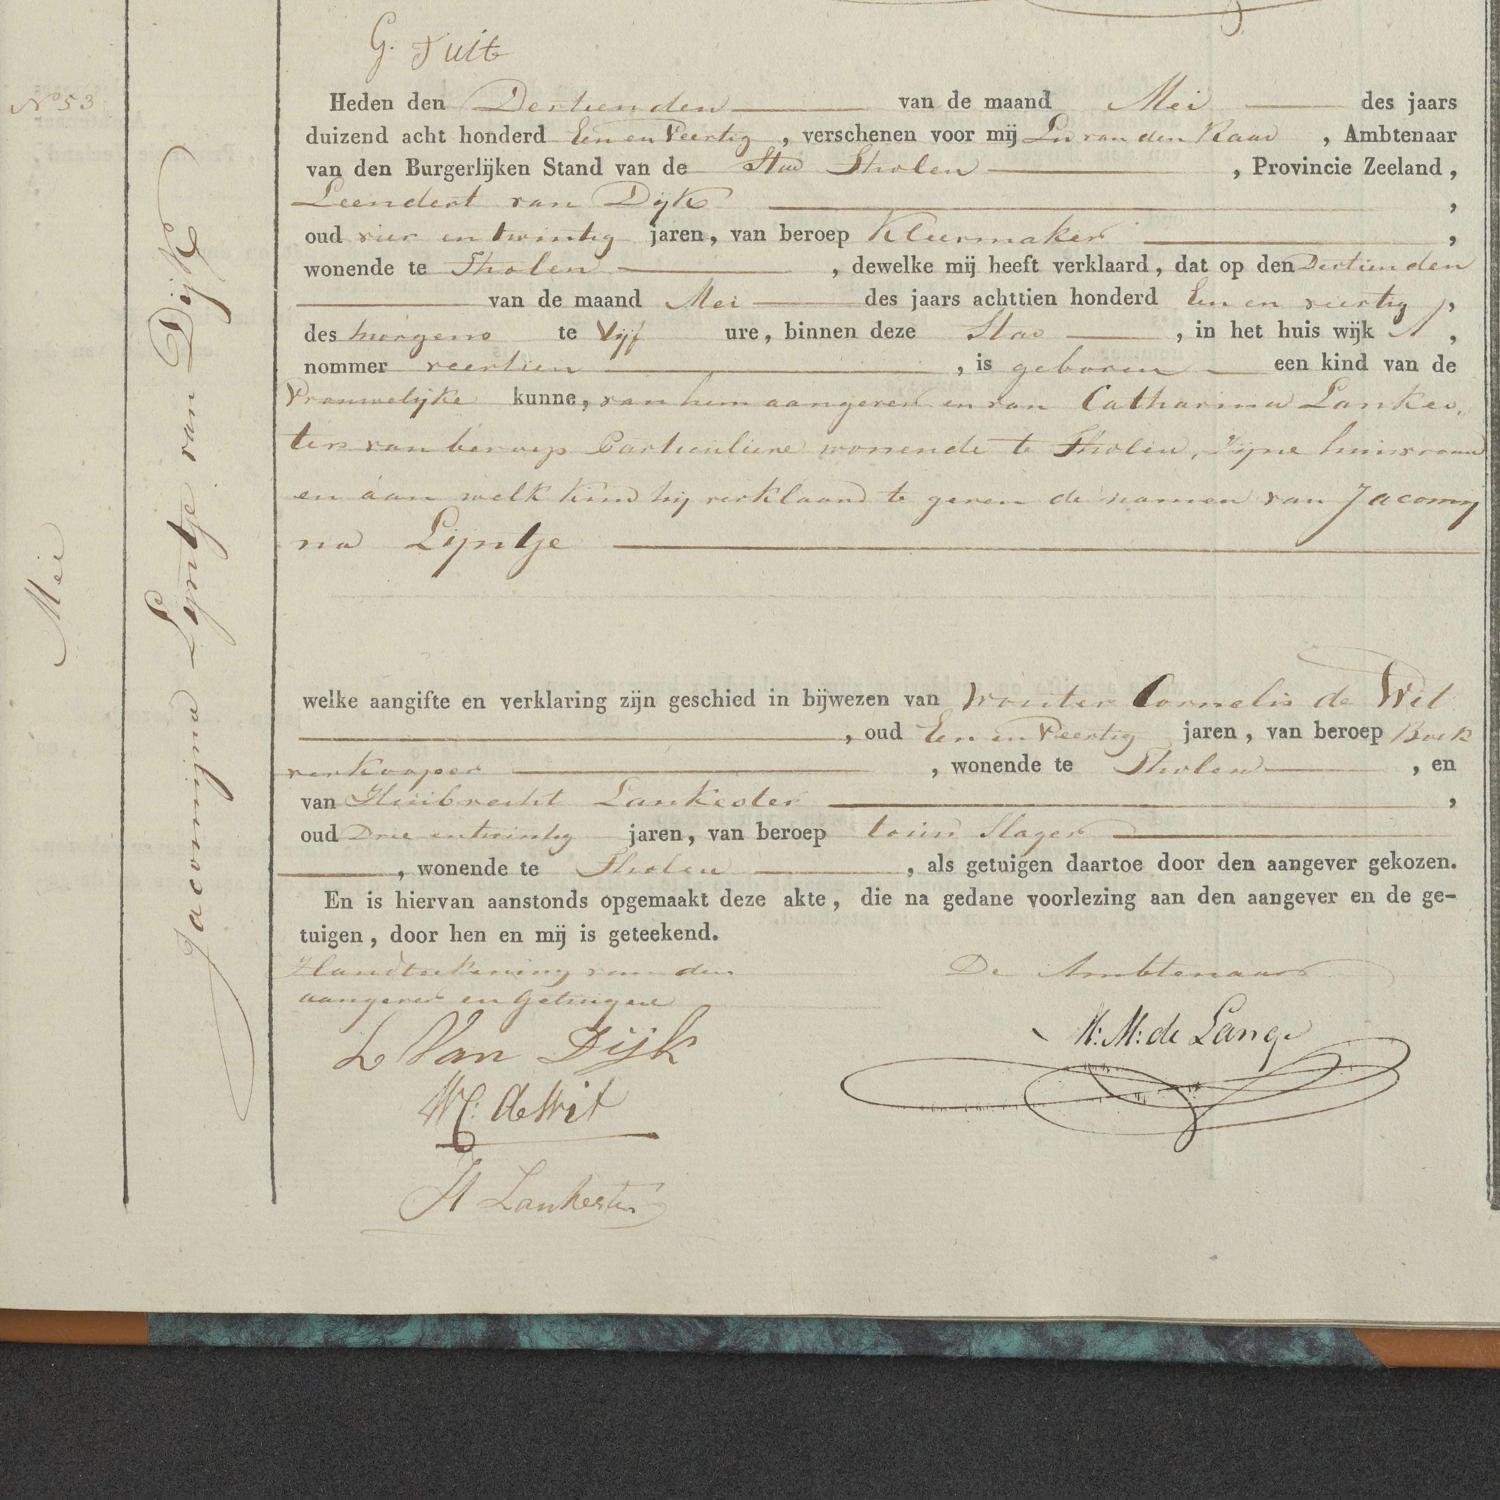 G. Tuit
N° 53
Heden den Dertienden van de maand Mei des jaars
duizend acht honderd Een en Veertig, verschenen voor mij van den Raad, Ambtenaar
van den Burgerlijken Stand van de Stad Tholen, Provincie Zeeland,
Leendert van Dijk,
oud vier en twintig jaren, van beroep Kleermaker,
wonende te Tholen, dewelke mij heeft verklaard, dat op den Dertienden
van de maand Mei des jaars achttien honderd Een en veertig,
des morgens te Vijf ure, binnen deze Stad, in het huis wijk A,
nommer veertien, is geboren een kind van de
Vrouwelijke kunne, van hem aangever en van Catharina Lankes
ters van beroep Particuliere wonende te Tholen, Zijne huisvrouw
en aan welk kind hij verklaard te geven de namen van Jacomij
na Lijntje
Mei
Jacomijna Lijntje van Dijk
welke aangifte en verklaring zijn geschied in bijwezen van Wouter Cornelis de Wit
, oud Een en Veertig jaren, van beroep Boek
verkooper, wonende te Tholen, en
van Huibrecht Lankester,
oud Drie entwintig jaren, van beroep Slager
, wonende te Tholen, als getuigen daartoe door den aangever gekozen.
En is hiervan aanstonds opgemaakt deze akte, die na gedane voorlezing aan den aangever en de ge-
tuigen, door hen en mij is geteekend.
Handteekening van den
aangever en Getuigen
De Ambtenaar
L Van Dijk
M: M: de Lange
WC: de Wit
H Lankester